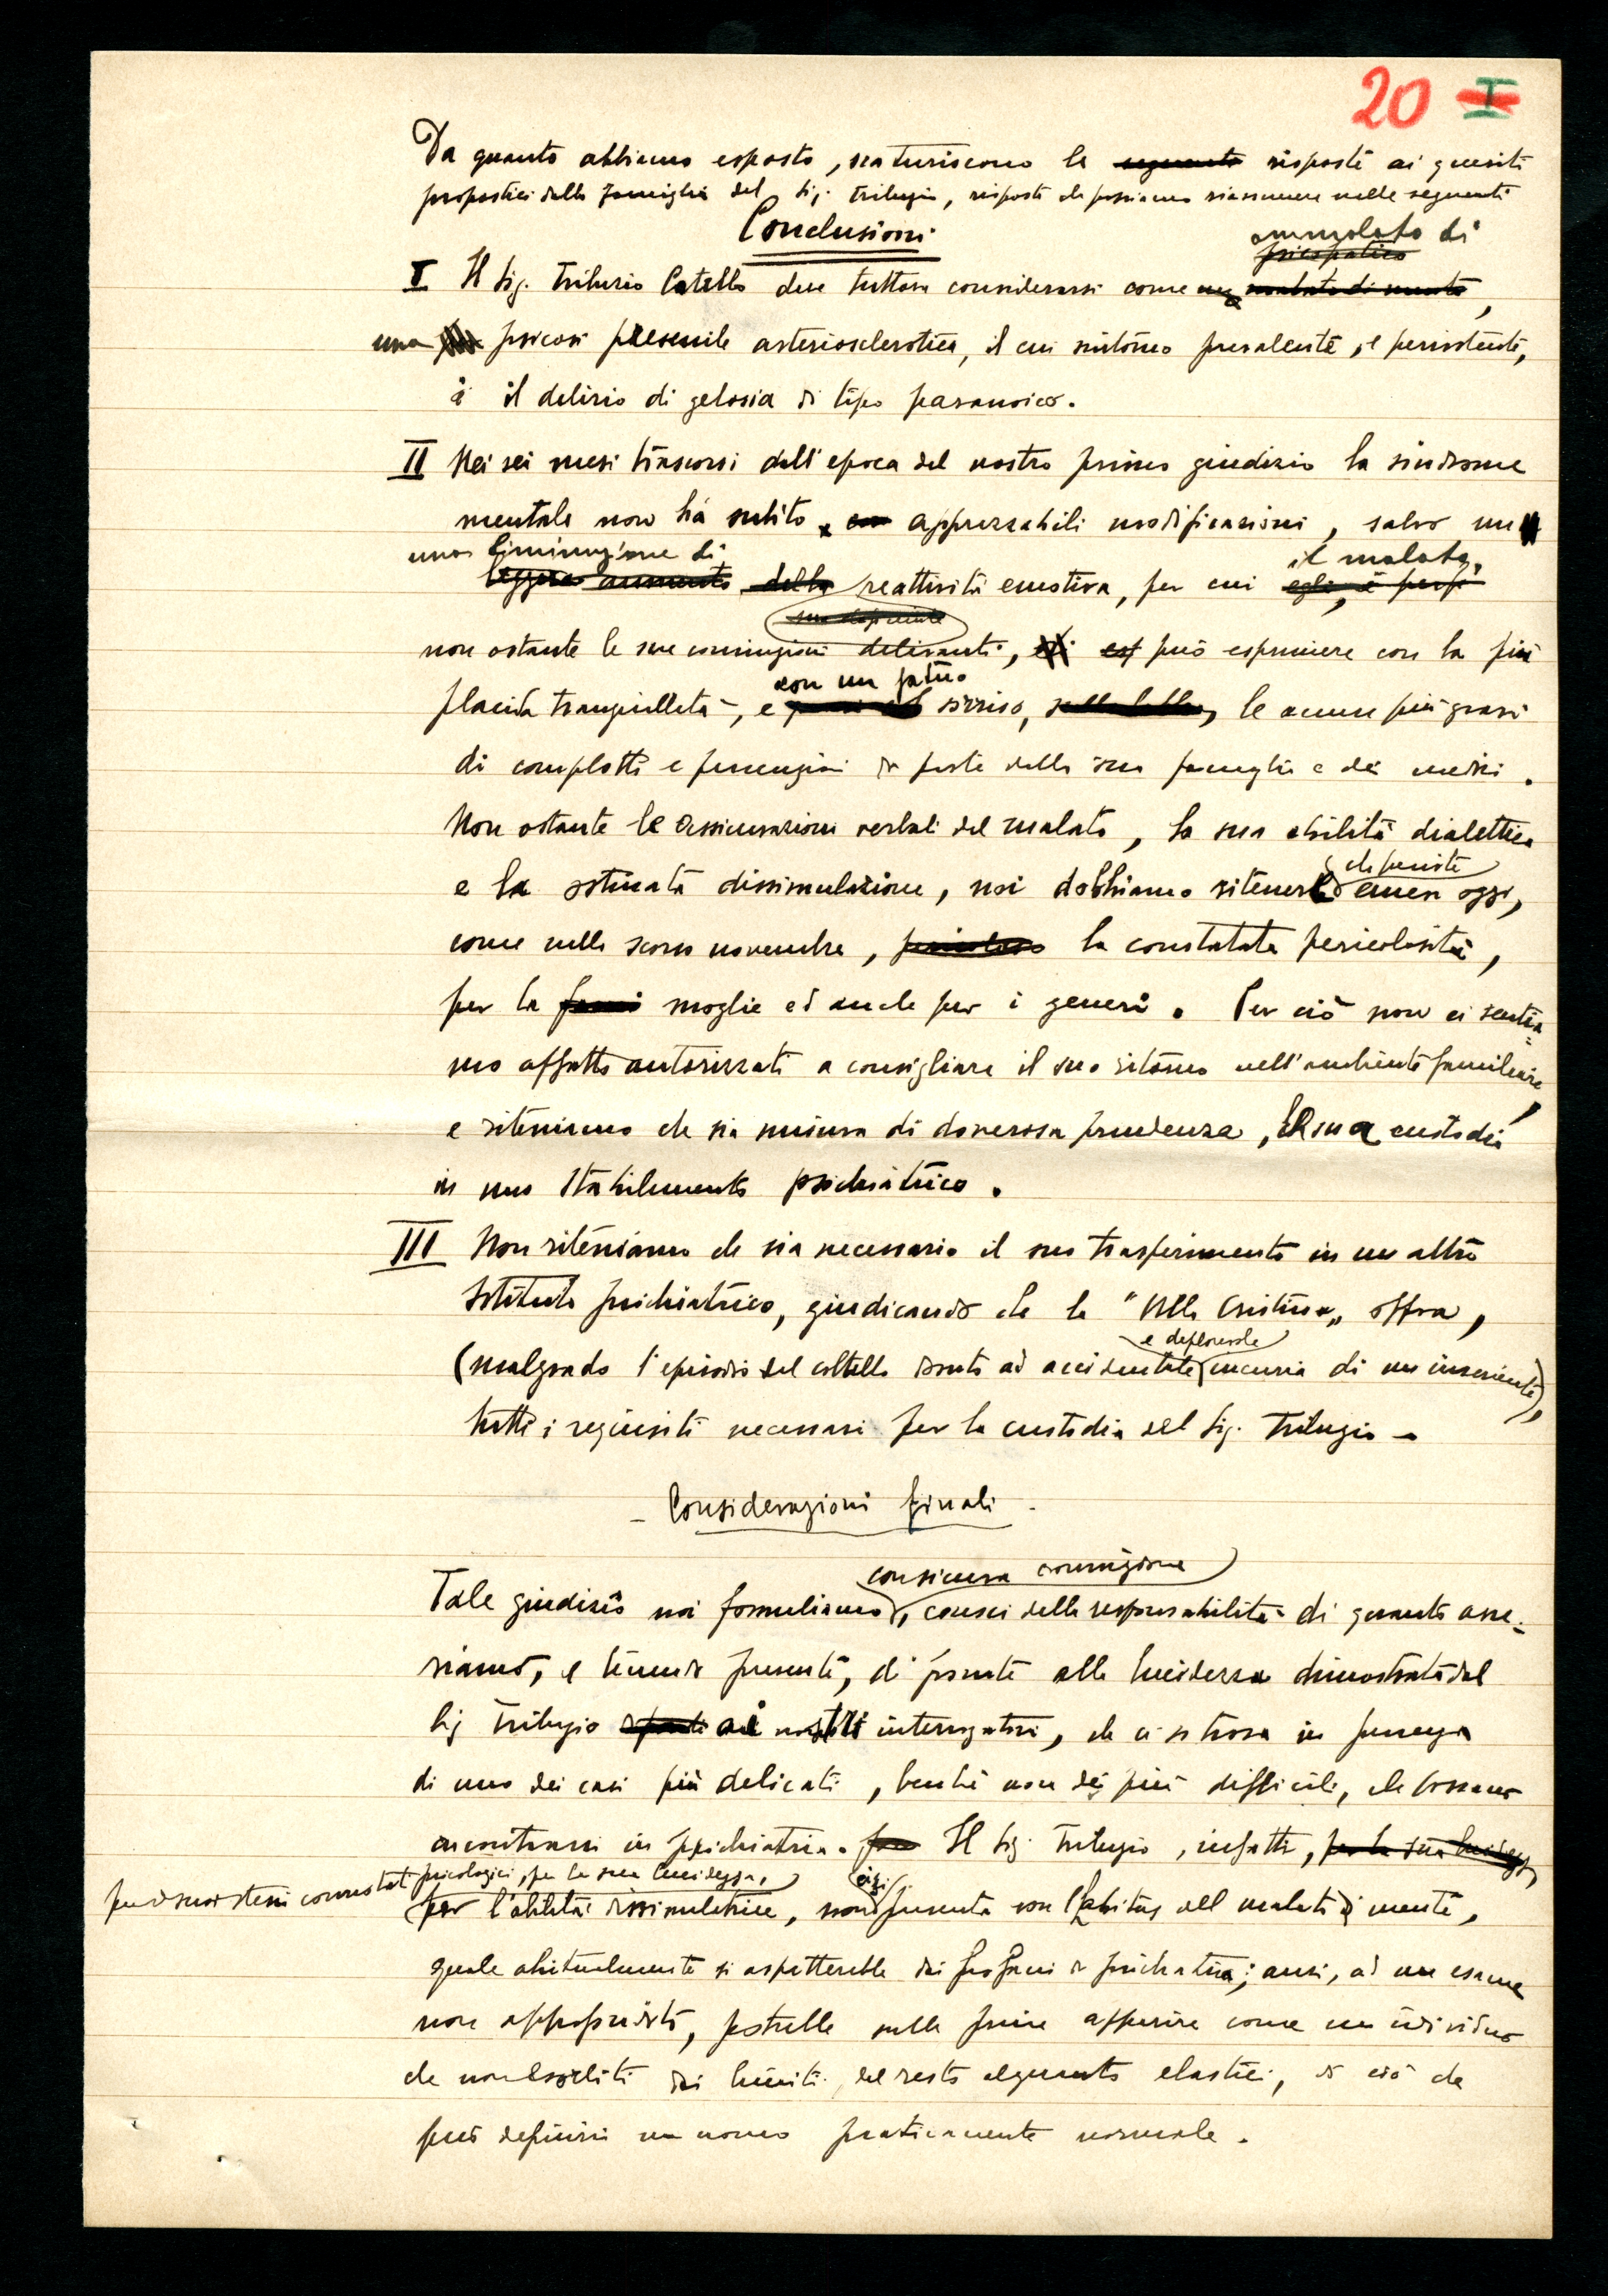 20 I
Da quanto abbiamo esposto, scaturiscono le seguenti risposte ai quesiti
propostici dalla famiglia del Sig. Trilugio, risposte che possiamo riassumere nelle seguenti
Conclusioni
ammalato di
psicopatico
I Il Sig. Catello deve tuttora considerarsi come un malato di mente,
una psicosi presenile arteriosclerotica, il cui sintomo prevalente, e persistente,
è il delirio di gelosia di tipo paranoico.
II Nei sei mesi trascorsi dall'epoca del nostro primo giudizio la sindrome
mentale non ha subito apprezzabili modificazioni, salvo un
una diminuzione di il malato,
leggero aumento della reattività emotiva, per cui egli, è
non ostante le sue convinzioni deliranti, può esprimere con la più
con un fatuo
placida tranquillità, e sorriso, sulle labbra, le accuse più gravi
di complotti e persecuzioni da parte della sua famiglia e dei medici.
Non ostante le assicurazioni verbali del malato, la sua abilità dialettica
che persiste
e la ostinata dissimulazione, noi dobbiamo ritenere ancora oggi,
come nello scorso novembre, pericoloso la constatata pericolosità,
per la moglie ed anche per i generi. Per ciò non ci sentia=
mo affatto autorizzati a consigliare il suo ritorno nell'ambiente familiare,
e riteniamo che sia misura di doverosa prudenza, la sua custodia
in uno stabilimento psichiatrico.
III Non riteniamo che sia necessario il suo trasferimento in un altro
Istituto psichiatrico, giudicando che la "Villa Cristina" offra,
e deplorevole
(malgrado l'episodio del coltello dovuto ad accidentale incuria di un inserviente),
tutti i requisiti necessari per la custodia del Sig. Trilugio -
- Considerazioni finali -
con sicura convinzione
Tale giudizio noi formuliamo, consci della responsabilità di quanto asse=
riamo, e tenendo presente, di fronte alla lucidezza dimostrata dal
Sig Trilugio ai nostri interrogatori, che ci si trova in presenza
di uno dei casi più delicati, benché non dei più difficili, che possano
incontrarsi in psichiatria. Il Sig. Trilugio, infatti, per la sua lucidezza,
per i suoi stessi connotati psicologici, per la sua lucidezza, egli
per l'abilità dissimulatrice, non presenta con l'habitus del malato di mente,
quale abitualmente si aspetterebbe dai profani di psichiatria; anzi, ad un esame
non appropriato, potrebbe sulle prime apparire come un individuo
che non esorbiti dai limiti, del resto alquanto elastici, di ciò che
può definirsi un uomo praticamente normale.